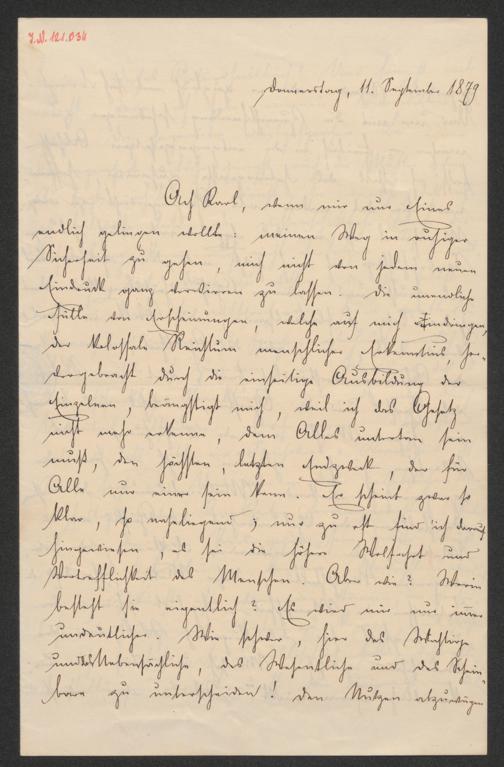 J.N. 121.034
Donnerstag, 11. September 1879
Ach Karl, wenn mir nur Eines
endlich gelingen wollte: meinen Weg in ruhiger
Sicherheit zu gehen, mich nicht von jedem neuen
Eindruck ganz verwirren zu lassen. Die unendliche
Fülle von Erscheinungen, welche auf mich Eindringen,
der kolossale Reichtum menschlicher Erkenntnis, her-
vorgebracht durch die einseitige Ausbildung der
Einzelnen, beängstigt mich, weil ich das Gesetz
nicht mehr erkenne, dem Alles unterthan sein
muß, den höchsten, letzten Endzweck, der für
Alle nur einer sein kann. Er scheint zwar so
klar, so naheliegend; nur zu oft sind ich darauf
hingewiesen, es sei die höhere Wolfahrt und
Vortrefflichkeit des Menschen. Aber wie? Worin
besteht sie eigentlich? Es wird mir nur immer
undeutlicher. Wie schwer, hier das Wichtige
und das Nebensächliche, das Wesentliche und das Schein-
bare zu unterscheiden! Den Nutzen abzuwägen